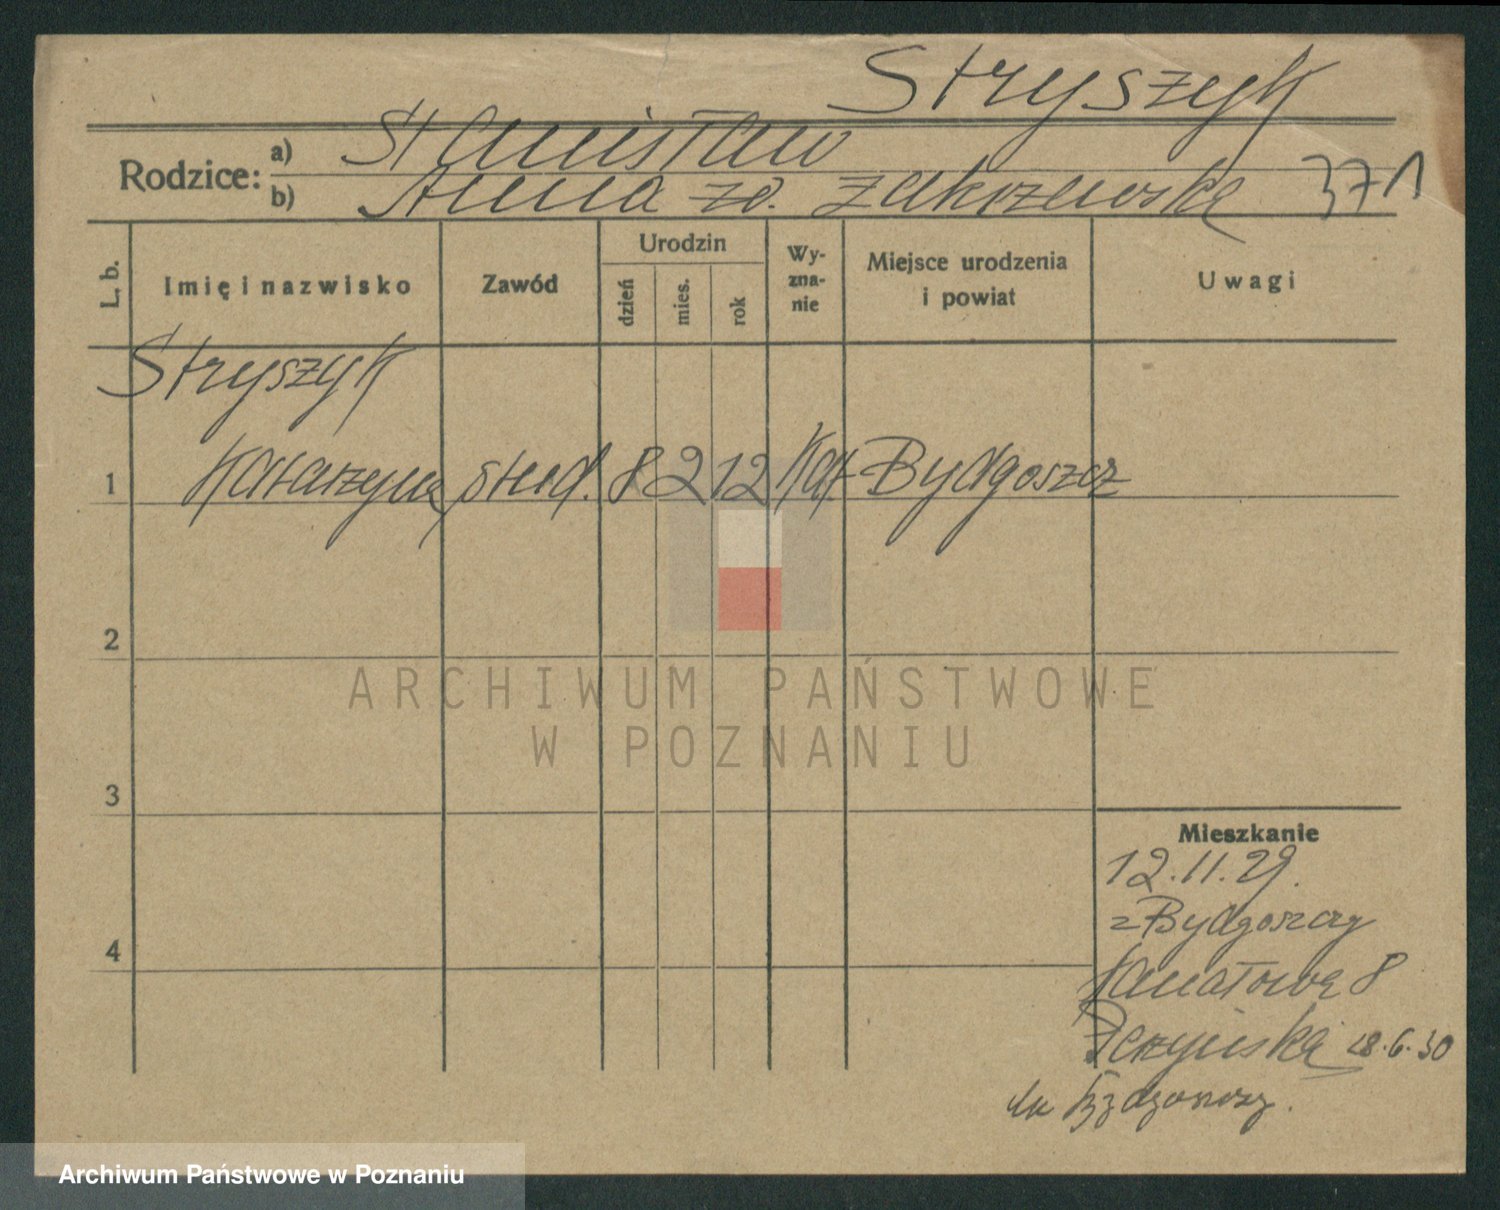 Stryszyk
Rodzice: a) Stanisław
b) Anna zd. Zakrzewska 371
L. b. Imię i nazwisko Zawód Urodzin dzień mies. rok Wyznanie Miejsce urodzenia i powiat Uwagi
Stryszyk
1 Katarzyna stud. 8 2 12 Kat Bydgoszcz
2
ARCHIWUM PAŃSTWOWE
W POZNANIU
3
Mieszkanie
12.11.29.
z Bydgoszczy
4
8
28.6.30
do Bydgoszczy.
Archiwum Państwowe w Poznaniu